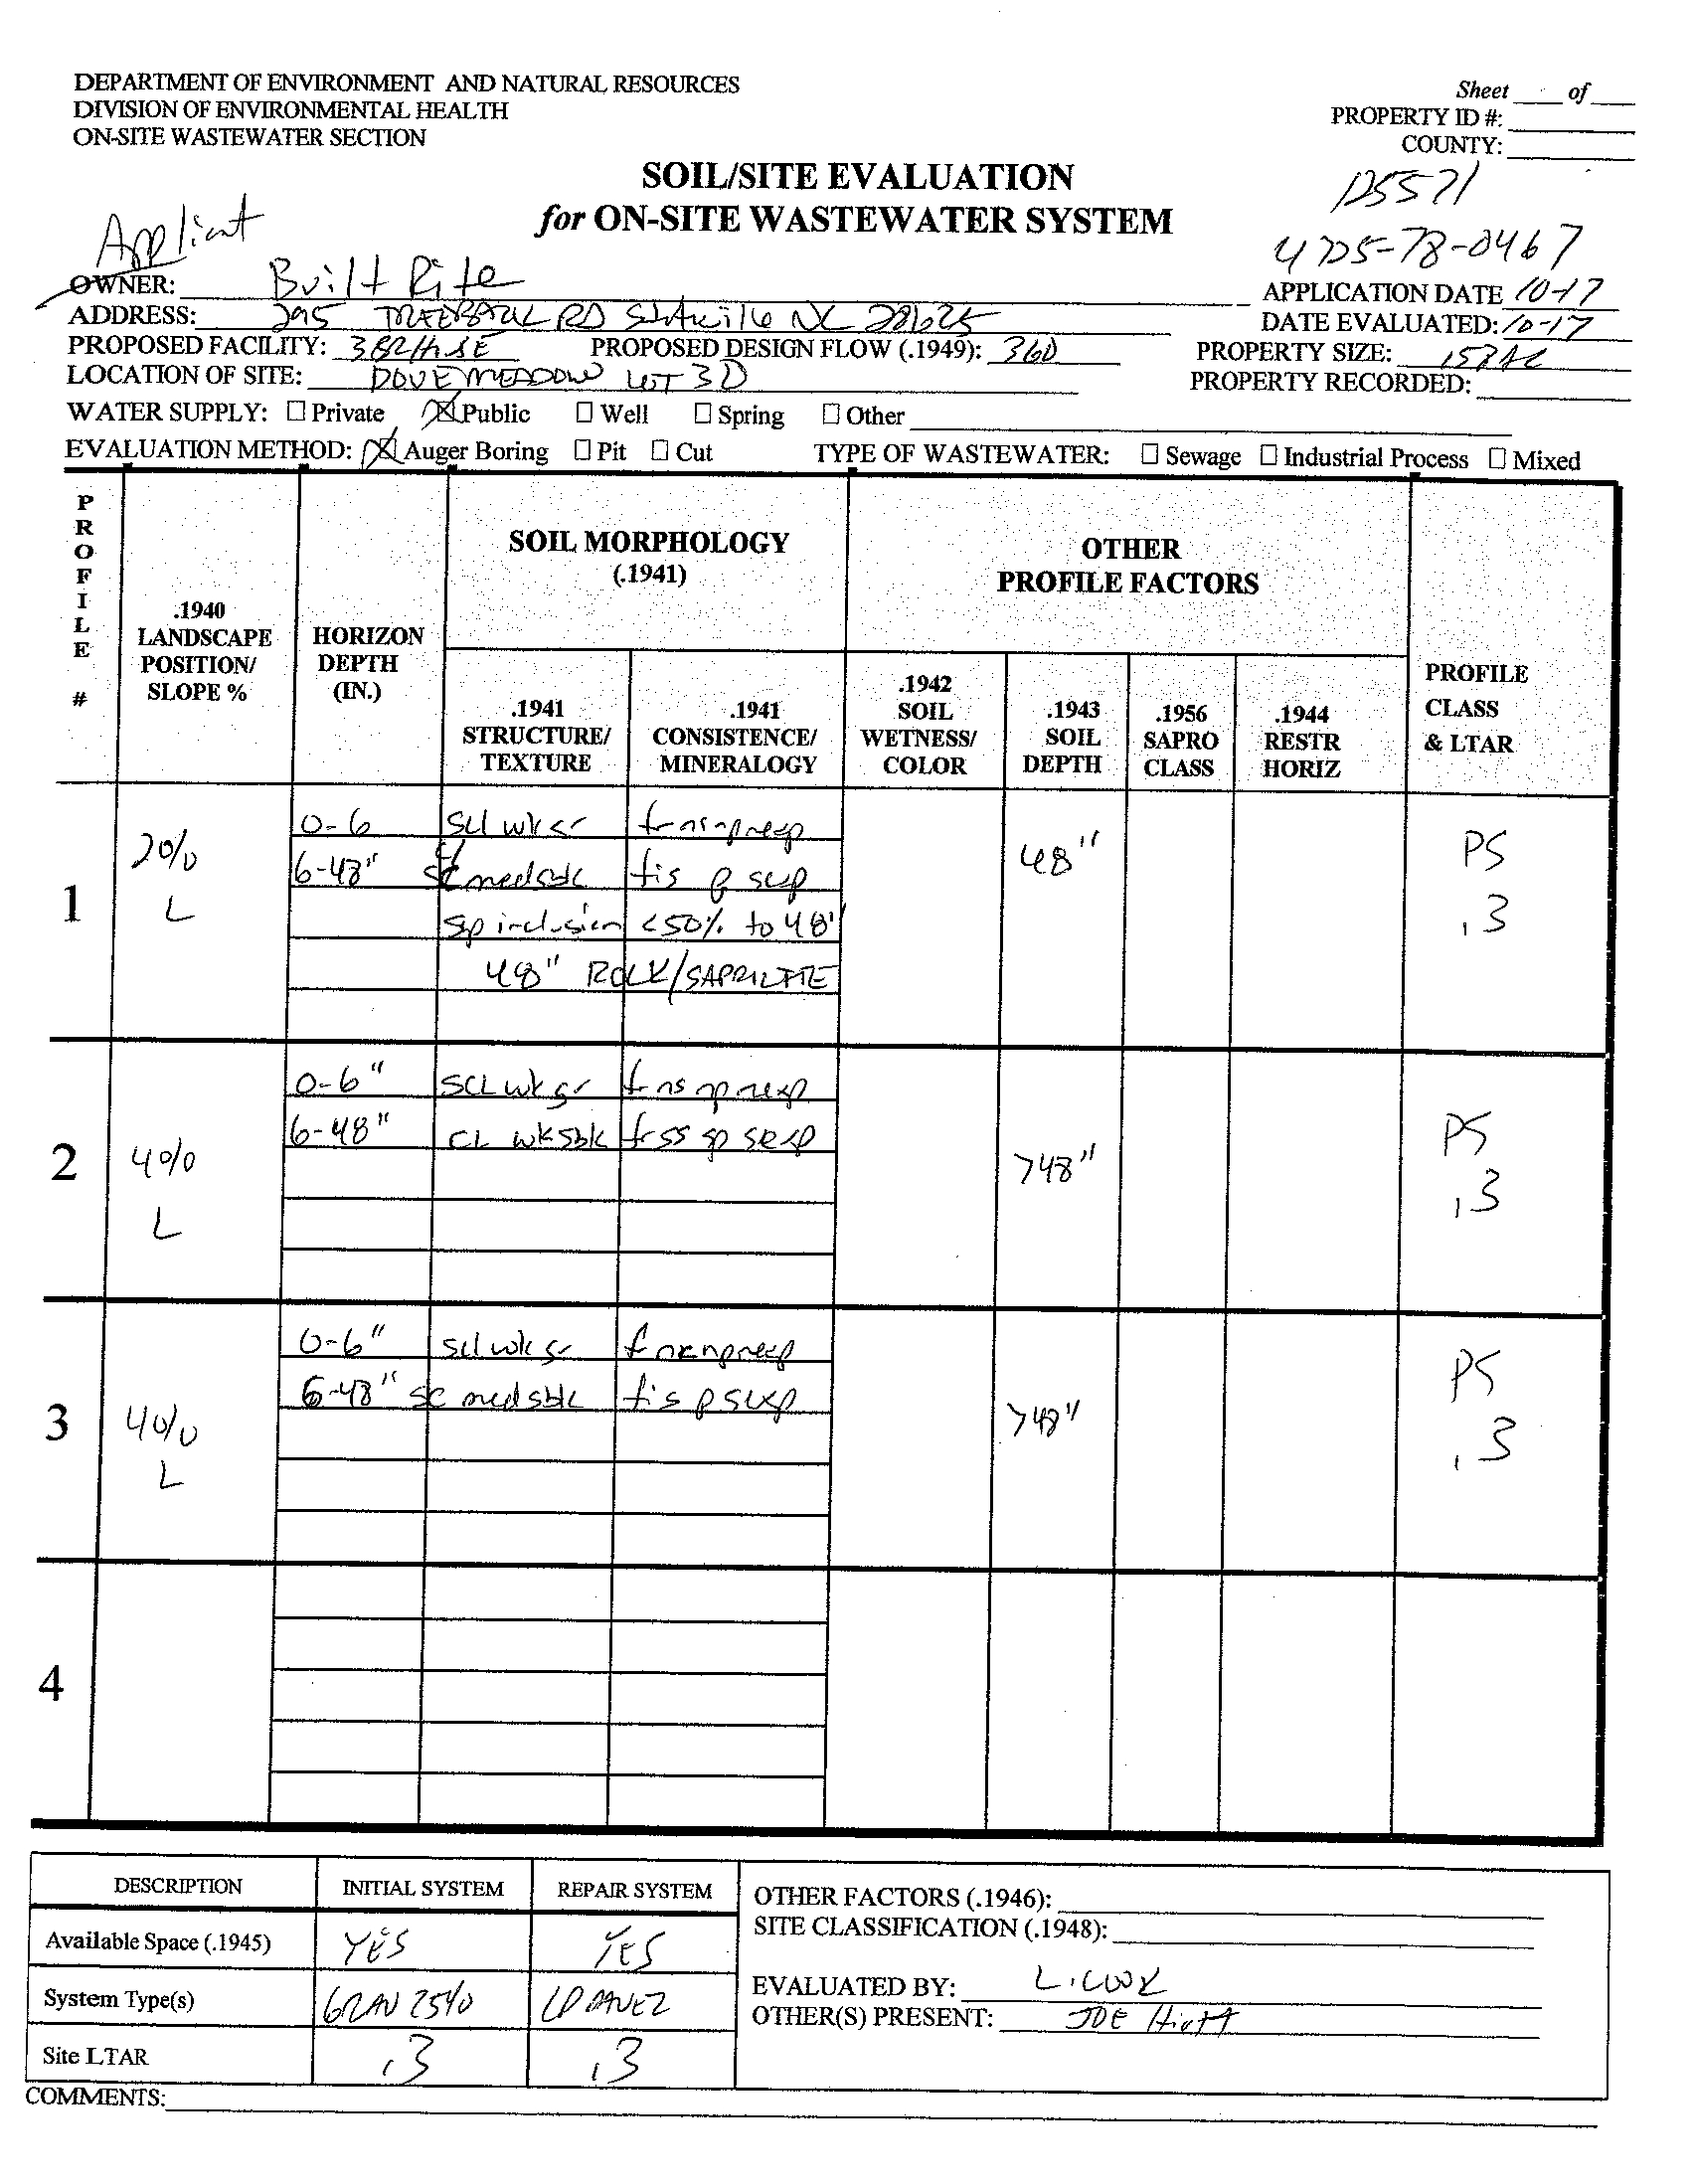 DEPARTMENT OF ENVIRONMENT AND NATURAL RESOURCES
DIVISION OF ENVIRONMENTAL HEALTH
ON-SITE WASTEWATER SECTION
Sheet ____ of ____
PROPERTY ID #:
COUNTY:
SOIL/SITE EVALUATION
for ON-SITE WASTEWATER SYSTEM
4725-78-0467
OWNER: Built Rite
APPLICATION DATE 10-17
ADDRESS: 295 RD NC 28625
DATE EVALUATED: 10-17
PROPOSED FACILITY: PROPOSED DESIGN FLOW (.1949): 360
PROPERTY SIZE:
LOCATION OF SITE: DOVE MEADOW LOT 3D
PROPERTY RECORDED:
WATER SUPPLY: ☐ Private ☒ Public ☐ Well ☐ Spring ☐ Other
EVALUATION METHOD: ☒ Auger Boring ☐ Pit ☐ Cut
TYPE OF WASTEWATER: ☐ Sewage ☐ Industrial Process ☐ Mixed
PROFILE #
.1940 LANDSCAPE POSITION/ SLOPE %
HORIZON DEPTH (IN.)
SOIL MORPHOLOGY (.1941)
.1941 STRUCTURE/ TEXTURE
.1941 CONSISTENCE/ MINERALOGY
OTHER PROFILE FACTORS
.1942 SOIL WETNESS/ COLOR
.1943 SOIL DEPTH
.1956 SAPRO CLASS
.1944 RESTR HORIZ
PROFILE CLASS & LTAR
1
2%
L
0-6 scl wk gr
6-48"
sp inclusion <50% to 48"
48" ROCK/SAPROLITE
48"
PS
.3
2
4%
L
0-6" SCL wk gr
6-48" CL wksbk fr ss sp sexp
>48"
PS
.3
3
4%
L
0-6" scl wk gr
6-48" sc med sbk
>48"
PS
.3
4
DESCRIPTION INITIAL SYSTEM REPAIR SYSTEM
Available Space (.1945) YES YES
System Type(s) GRAV 25%
Site LTAR .3 .3
OTHER FACTORS (.1946):
SITE CLASSIFICATION (.1948):
EVALUATED BY: L. COOK
OTHER(S) PRESENT: JOE Hiatt
COMMENTS: